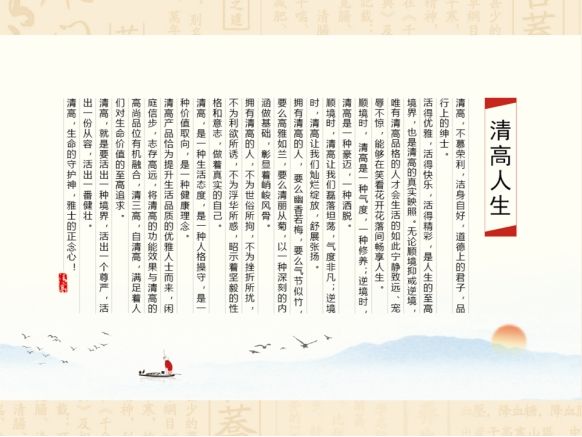 清高人生
清高，不慕荣利，洁身自好，道德上的君子，品
行上的绅士。
活得优雅，活得快乐，活得精彩，是人生的至高
境界，也是清高的真实映照。无论顺境抑或逆境，
唯有清高品格的人才会生活的如此宁静致远、宠
辱不惊，能够在笑看花开花落间畅享人生。
顺境时，清高是一种气度，一种修养；逆境时，
清高是一种豪迈，一种洒脱。
顺境时，清高让我们磊落坦荡，气度非凡；逆境
时，清高让我们灿烂绽放，舒展张扬。
拥有清高的人，要么幽香若梅，要么气节似竹，
要么高雅如兰，要么清丽从菊，以一种深刻的内
涵做基础，彰显着峭峻风骨。
拥有清高的人，不为世俗所拘，不为挫折所扰，
不为利欲所诱，不为浮华所惑，昭示着坚毅的性
格和意志，做着真实的自己。
清高，是一种生活态度，是一种人格操守，是一
种价值取向，是一种健康理念。
清高产品恰为提升生活品质的优雅人士而来，闲
庭信步，志存高远，将清高的功能效果与清高的
高尚品位有机融合，清三高，自清高，满足着人
们对生命价值的至高追求。
清高，就是要活出一种境界，活出一个尊严，活
出一份从容，活出一番健壮。
清高，生命的守护神，雅士的正念心！